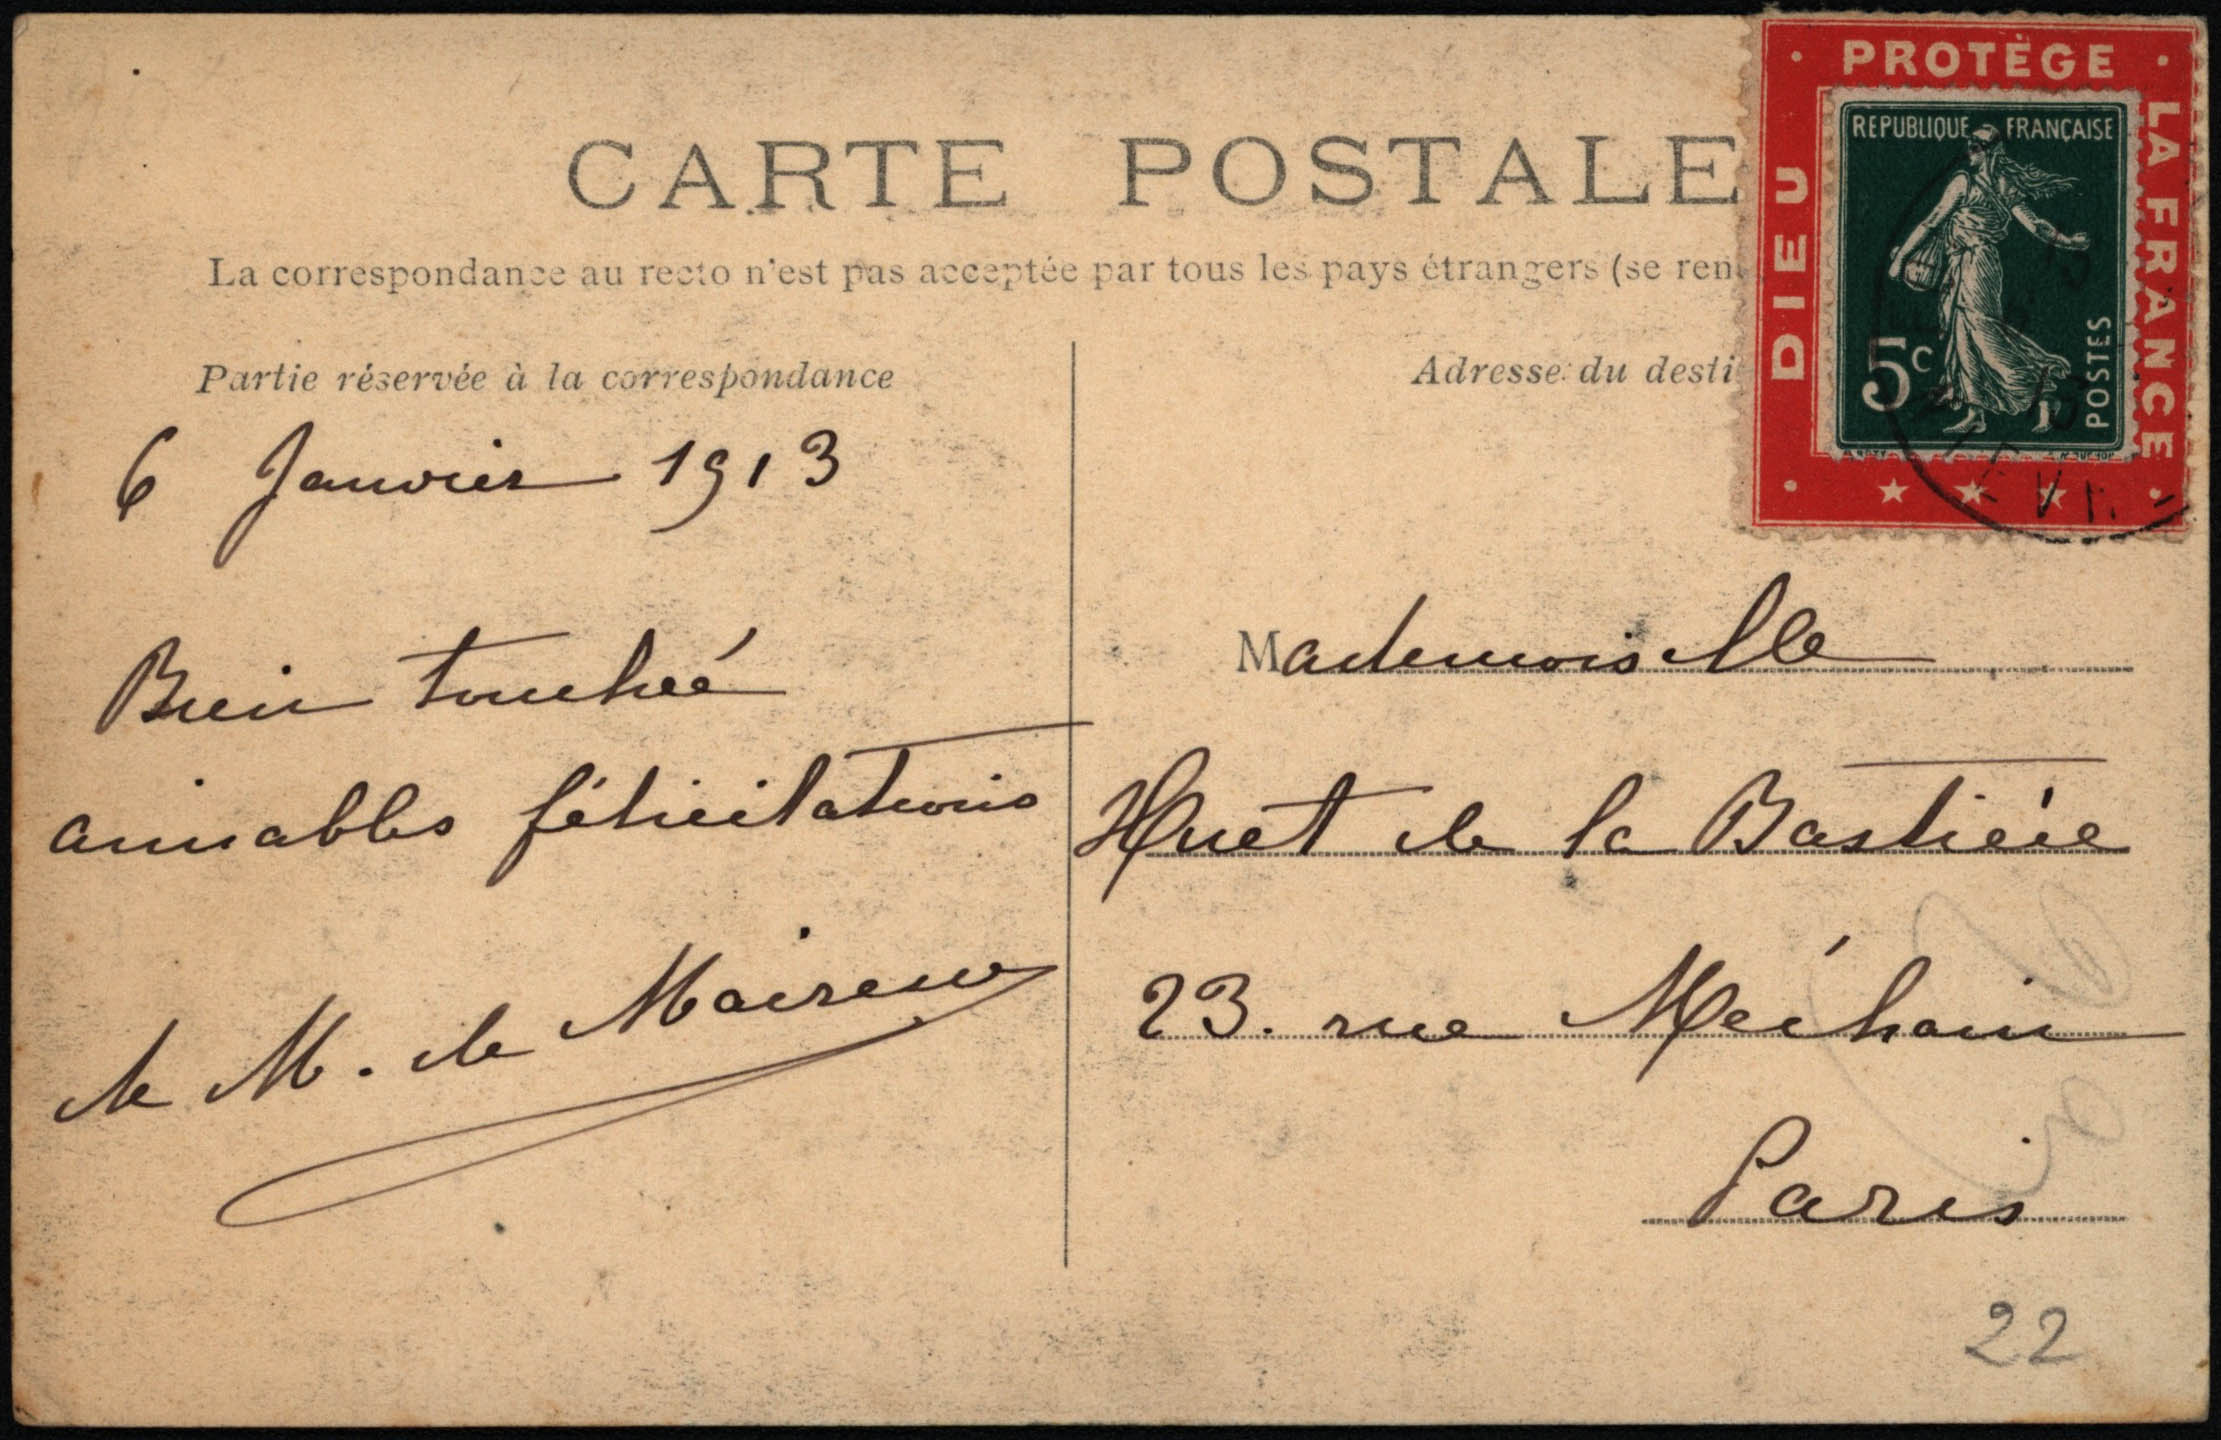 CARTE POSTALE
La correspondance au recto n'est pas acceptée par tous les pays étrangers (se ren
Partie réservée à la correspondance
Adresse du desti
DIEU PROTÈGE LA FRANCE
REPUBLIQUE FRANÇAISE
5c POSTES
6 Janvier 1913
Bien touchée
aimables félicitations
de M. de
Mademoiselle
Huet de la Bastière
23. rue Méchain
Paris
22